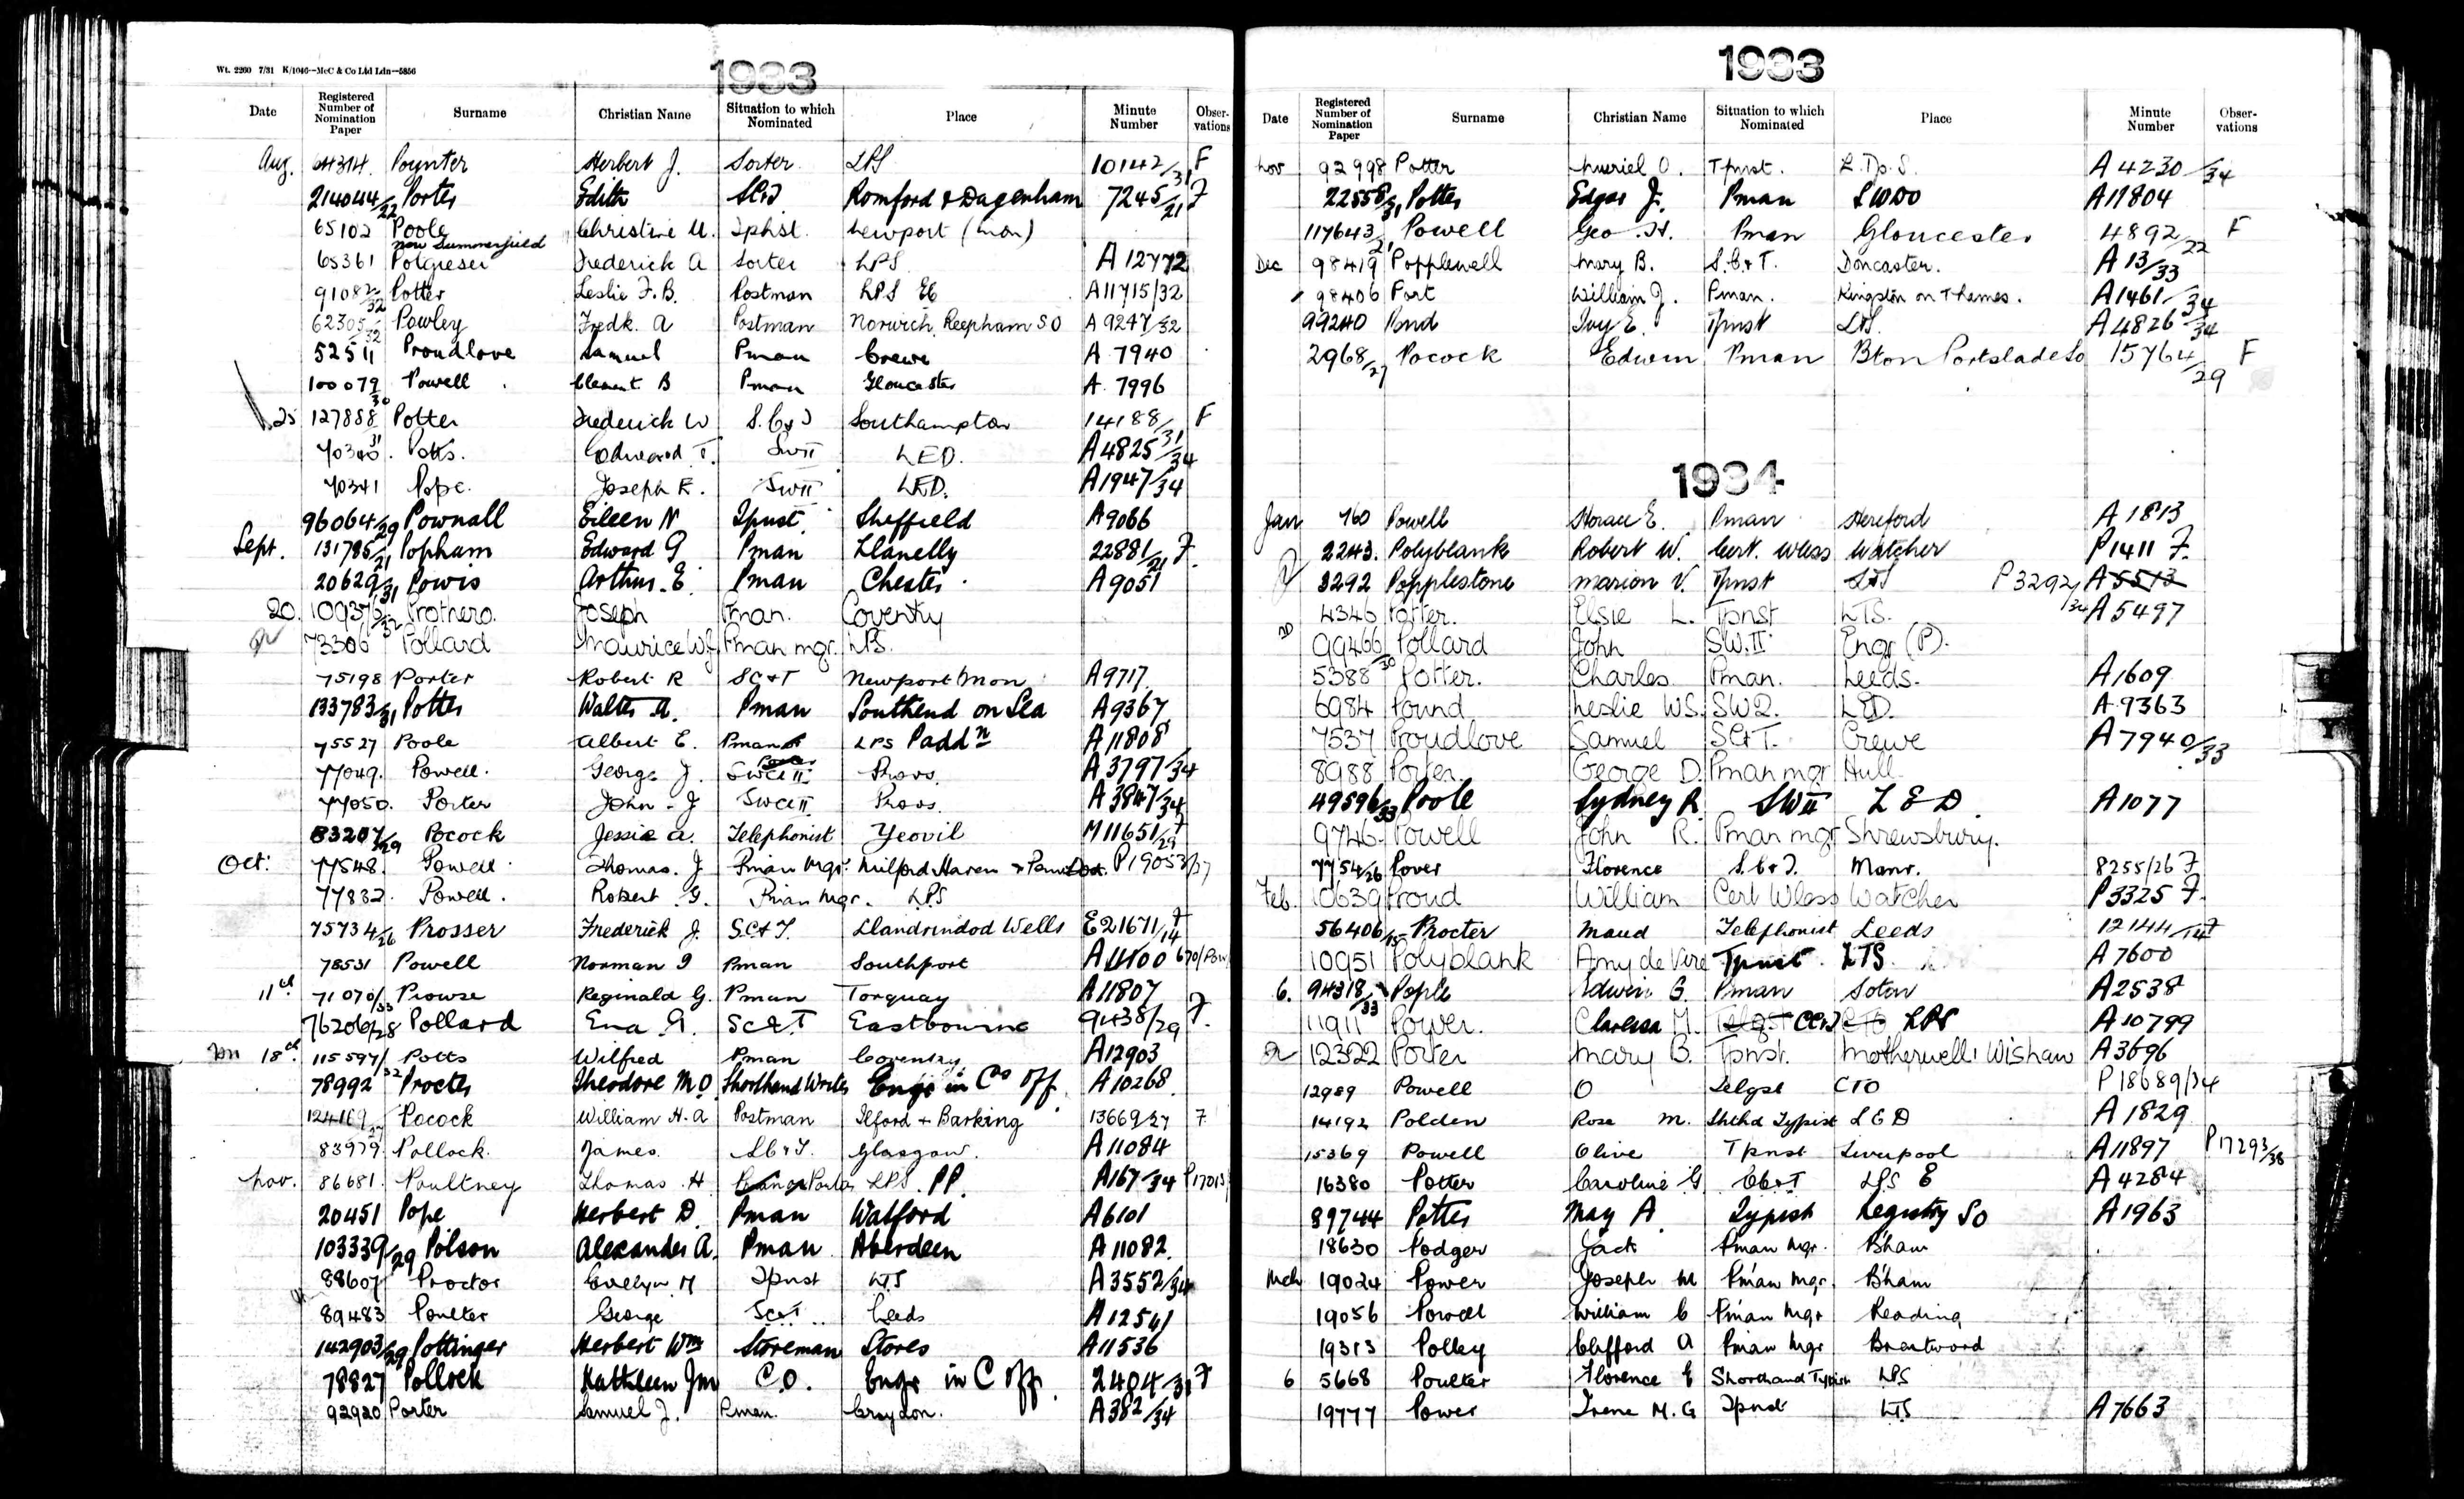 Wt. 2260 7/31 K/1046--McC & Co Ltd Ldn--5856
1933
Date Registered Number of Nomination Paper Surname Christian Name Situation to which Nominated Place Minute Number Obser-vations
Aug. Poynter Herbert J. Sorter LPS 10142/31 F
214044/22 Porter Edith SC&T Romford & Dagenham 7245/21 F
65102 Poole Christine Tphist. Newport (Mon)
now Summerfield
65361 Frederick A Sorter LPS A 12772
91082/32 Potter Leslie F.B. Postman LPS EC A11715/32
62305/32 Powley Fredk. A Postman Norwich, Reepham SO A 9247/32
52511 Proudlove Samuel Pman Crewe A 7940
100079/30 Powell Clement B Pman Gloucester A 7996
25 127888/31 Potter Frederick W S.C&T Southampton 14188/31 F
70340 Potts. Edward T. SWII LED. A4825/34
70341 Pope Joseph E. SWII LED. A1947/34
96064/29 Pownall Eileen N Tpnst Sheffield A9066
Sept. 131785/21 Popham Edward G Pman Llanelly 22881/21 F.
20629/31 Powis Arthur E Pman Chester A9051
20. 109376/32 Prothero. Joseph Pman. Coventry
73306 Pollard Maurice W.J. Pman mgr. LPS.
75198 Porter Robert R SC&T Newport Mon A9717.
133783/31 Potter Walter A. Pman Southend on Sea A9367
75527 Poole Albert E. Pman LPS Paddn A11808
77049. Powell. George J. SWCII Porter Provs. A 3797/34
77050. Porter John J SWCII Provs. A 3847/34
83207/29 Pocock Jessie A. Telephonist Yeovil M11651/29 F
Oct: 77548. Powell Thomas. J Pman Mgr. Milford Haven & Pem Dock P19053/37
77832. Powell. Robert G. Pman Mgr. LPS
75734/26 Prosser Frederick J. SC&T. Llandrindod Wells E21671/14 F
78531 Powell Norman G Pman Southport A11100
11th 71070/33 Prowse Reginald G. Pman Torquay A11807
76206/28 Pollard Ena A. SC&T Eastbourne 9438/29 F.
18th 115597/32 Potts Wilfred Pman Coventry A12903
78992 Procter Theodore M.O. Shorthand Writer Engr in Cs Off. A10268
124169/27 Pocock William H.A Postman Ilford + Barking 13669/27 F
83979 Pollock James SC&T. Glasgow. A11084
Nov. 86681. Poultney Thomas H Porter LPS PP. A167/34
20451 Pope Herbert D. Pman Watford A6101
103339/29 Polson Alexander A. Pman Aberdeen A11082.
88607 Proctor Evelyn M Tpnst LTS A3552/34
89483 Poulter George SC&T Leeds A12541
142903/29 Pottinger Herbert Wm Storeman Stores A11536
78827 Pollock Kathleen Jm C.O. Engr in C Off. 2404/31 F
92920 Porter Samuel J. Pman. Croydon. A382/34
1933
Date Registered Number of Nomination Paper Surname Christian Name Situation to which Nominated Place Minute Number Obser-vations
Nov 92998 Potter Muriel O. Tpnst. L.Tp.S. A4230/34
22558/31 Potter Edgar J. Pman SWDO A11804
117643/21 Powell Geo. H. Pman Gloucester 4892/22 F
Dec 98419 Popplewell Mary B. S.C&T. Doncaster. A13/33
98406 Port William J. Pman. Kingston on Thames. A1461/34
99240 Pond Ivy E. Tpnst LTS. A4826/34
2968/27 Pocock Edwin Pman Bton Portslade So 15764/29 F
1934
Jan 760 Powell Horace E. Pman Hereford A 1813
2243. Polyblank Robert W. Cert. Wless Watcher P1411 F.
3292 Popplestone Marion V. Tpnst LTS P3292/34 A5513
4346 Potter. Elsie L. Tpnst LTS. A5497
99466/30 Pollard John SW.II Engr (P).
5388 Potter. Charles Pman. Leeds. A1609
6984 Pound Leslie WS. SW2. LED. A9363
7537 Proudlove Samuel SC&T. Crewe A7940/33
8988 Porter. George D. Pman mgr Hull
49596/33 Poole Sydney R. SWII L E D A1077
9746. Powell John R. Pman mgr Shrewsbury.
7754/26 Pover Florence S.C&T. Manr. 8255/26 F
Feb. 10639 Proud William Cert Wless Watcher P3325 F.
56406/15 Procter Maud Telephonist Leeds 12144/14 F
10951 Polyblank Amy de Vire Tpnst LTS. A7600
6. 94318/33 Pople Edwin G. Pman Soton A2538
11911 Power. Claressa M. Telgst CC&T CTO LPS A10799
12322 Porter Mary B. Tpnst. Motherwell & Wishaw A3696
12989 Powell O Telgst CTO P18689/34
14192 Polden Rose M. Shthd Typist L E D A1829
15369 Powell Olive Tpnst Liverpool A11897 P17293/38
16380 Potter Caroline G CC&T LPS E A4284
89744 Potter May A Typist Registry So A1963
18630 Podger Jack Pman Mgr. B'ham
Mch 19024 Power Joseph M Pman Mgr. B'ham
19056 Powell William C Pman Mgr Reading
19313 Polley Clifford A Pman Mgr Brentwood
6 5668 Poulter Florence E Shorthand Typist LPS
19777 Power Irene M.G Tpnst LTS A7663